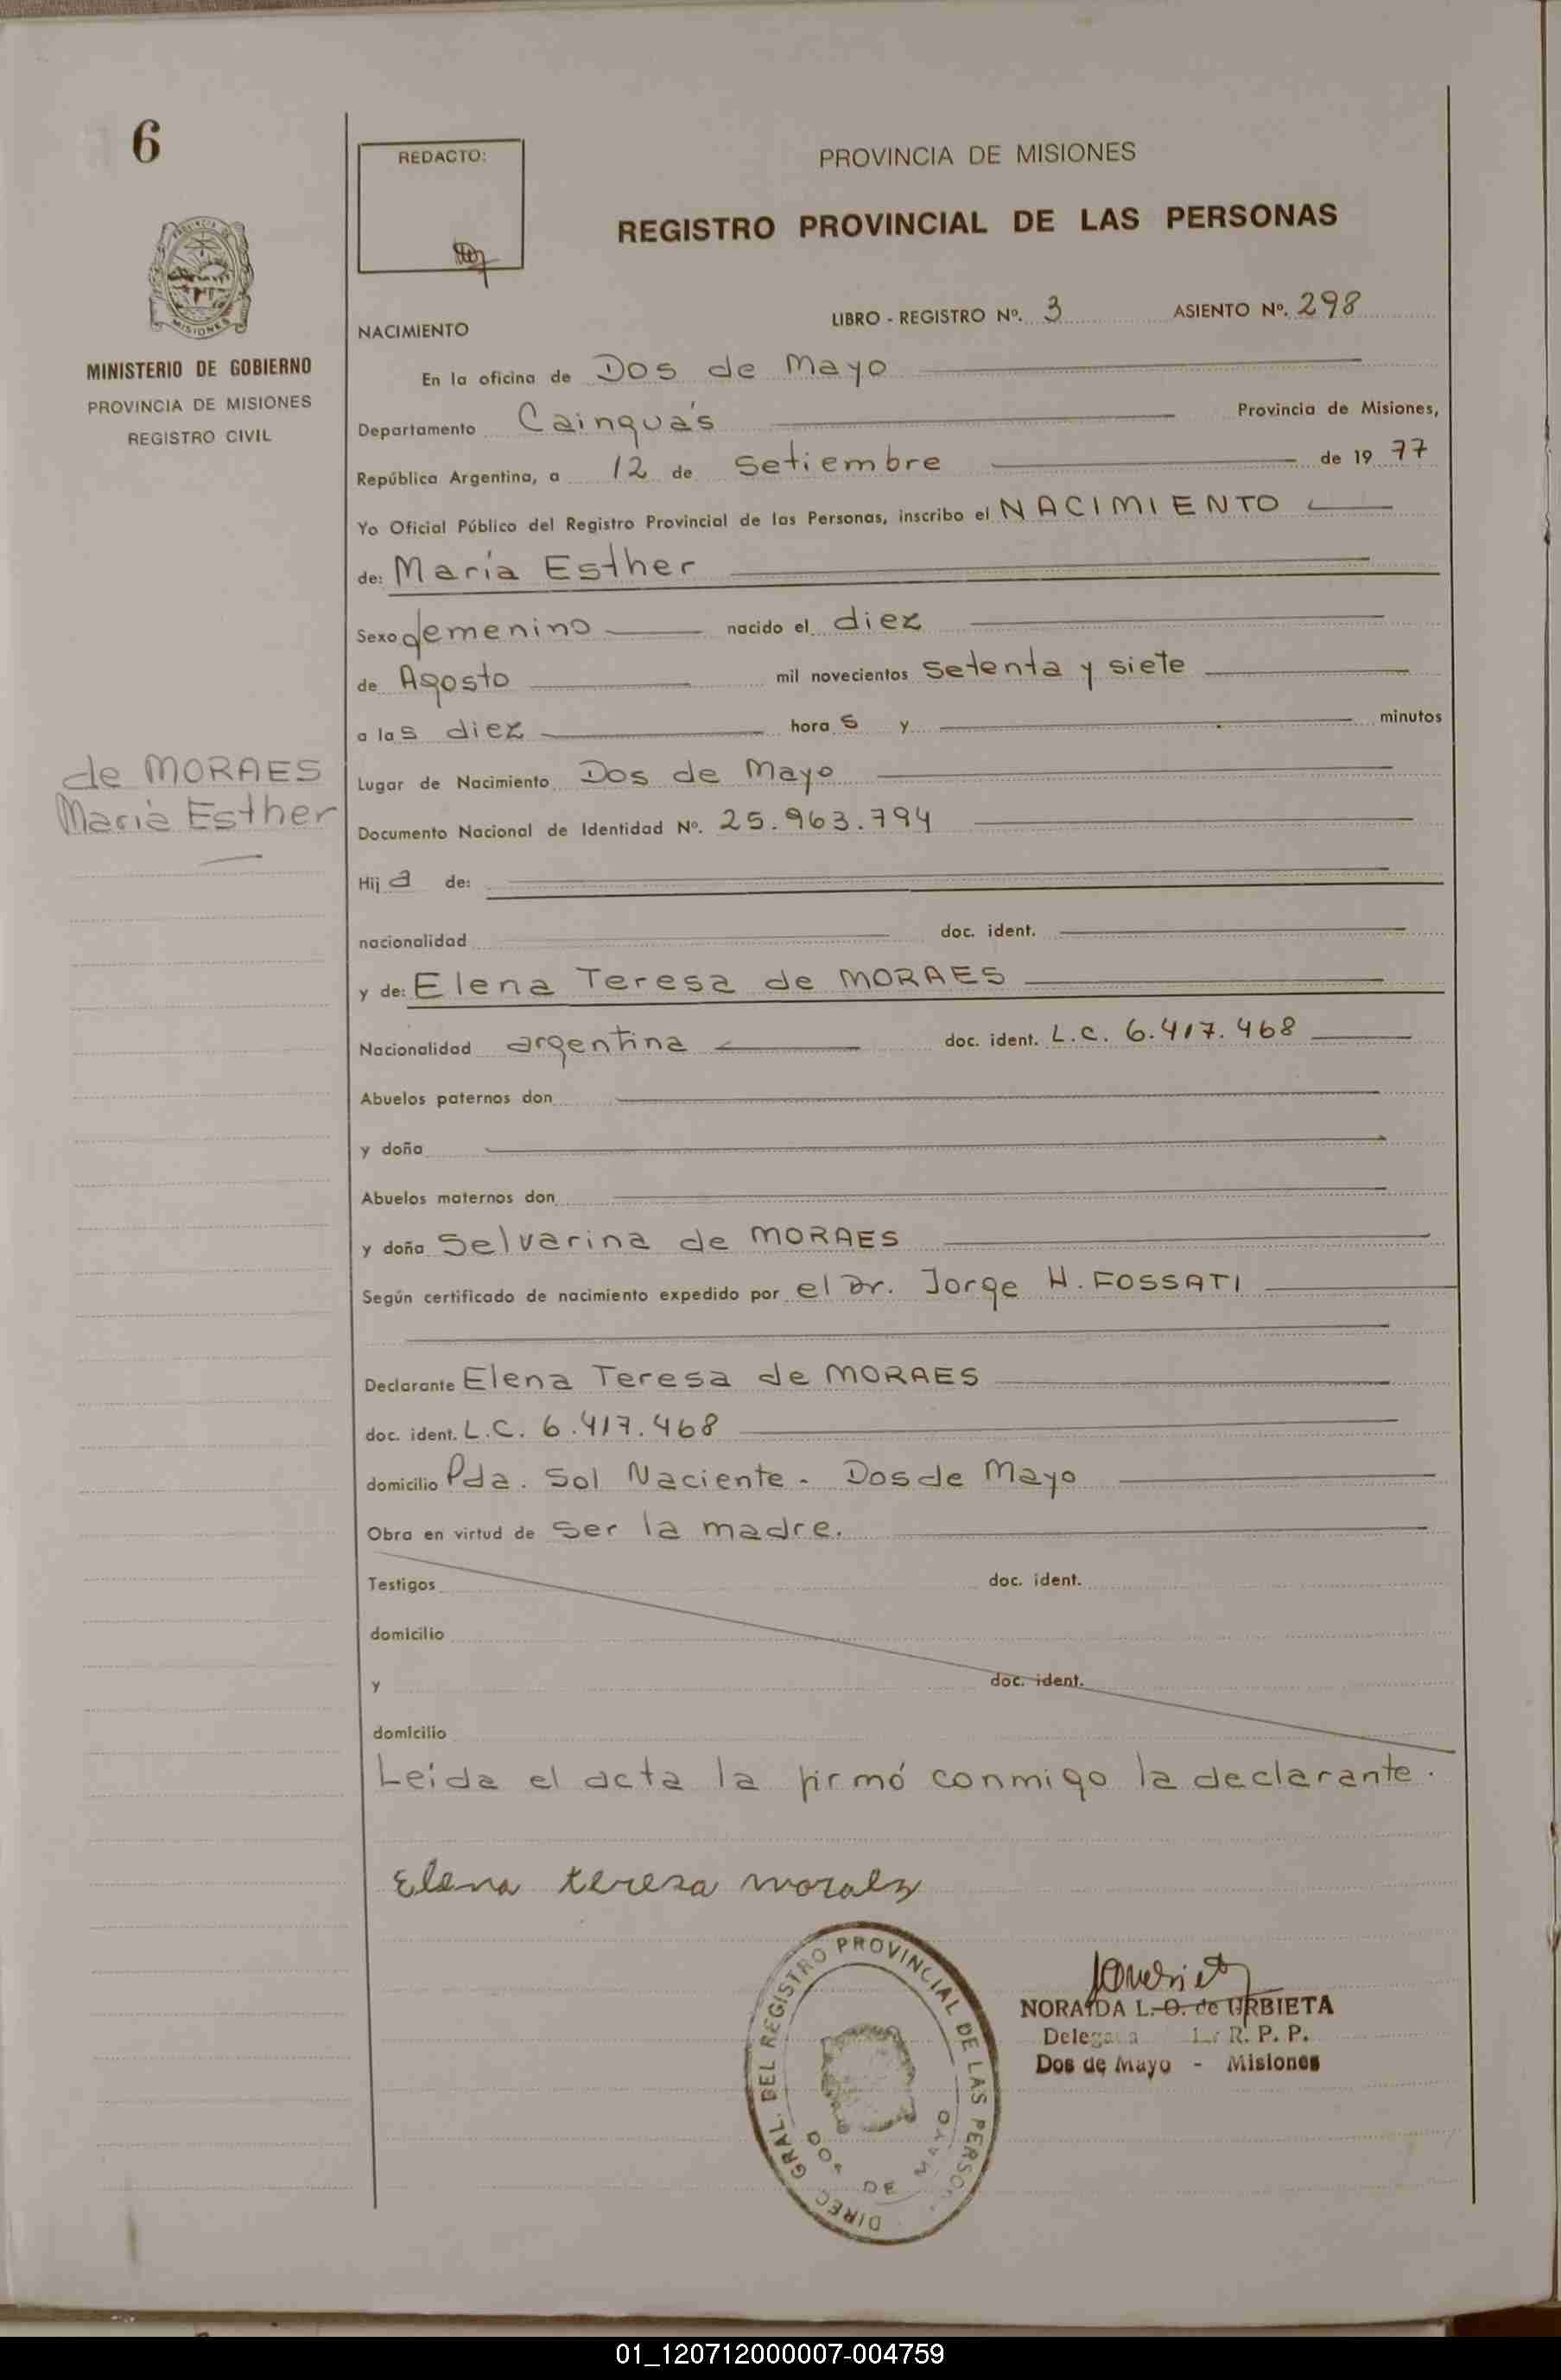 6
REDACTO:
PROVINCIA DE MISIONES
REGISTRO PROVINCIAL DE LAS PERSONAS
MISIONES
MINISTERIO DE GOBIERNO
PROVINCIA DE MISIONES
REGISTRO CIVIL
LIBRO - REGISTRO Nº. 3 ASIENTO Nº. 298
NACIMIENTO
En la oficina de Dos de Mayo
Departamento Cainguás Provincia de Misiones,
República Argentina, a 12 de Setiembre de 19 77
Yo Oficial Público del Registro Provincial de las Personas, inscribo el NACIMIENTO
de: María Esther
Sexo femenino nacido el diez
de Agosto mil novecientos setenta y siete
a las diez horas y minutos
Lugar de Nacimiento Dos de Mayo
de MORAES
María Esther
Documento Nacional de Identidad Nº. 25.963.794
Hija de:
nacionalidad doc. ident.
y de: Elena Teresa de MORAES
Nacionalidad argentina doc. ident. L.C. 6.417.468
Abuelos paternos don
y doña
Abuelos maternos don
y doña Selvarina de MORAES
Según certificado de nacimiento expedido por el Dr. Jorge H. FOSSATI
Declarante Elena Teresa de MORAES
doc. ident. L.C. 6.417.468
domicilio Pda. Sol Naciente - Dos de Mayo
Obra en virtud de ser la madre.
Testigos doc. ident.
domicilio
y doc. ident.
domicilio
Leída el acta la firmó conmigo la declarante.
Elena teresa moraes
DIREC. GRAL. DEL REGISTRO PROVINCIAL DE LAS PERSO.
DOS DE MAYO
NORAIDA L. O. de URBIETA
R. P. P.
Dos de Mayo - Misiones
01_120712000007-004759